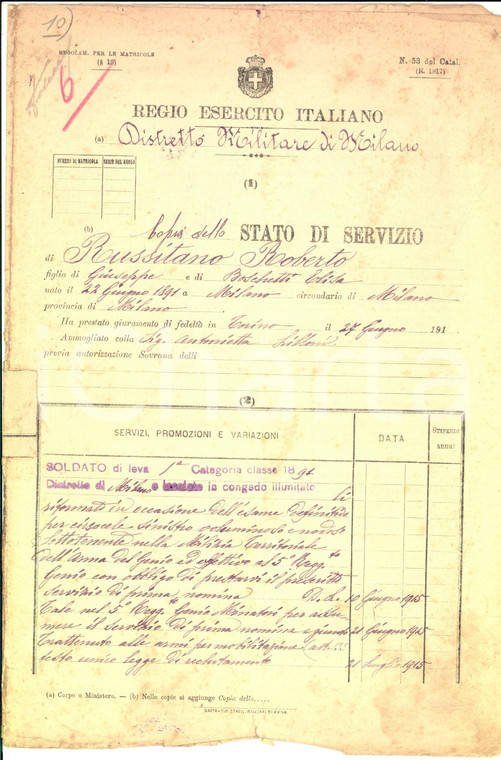 10)
REGOLAM. PER LE MATRICOLE
(§ 19)
6
N. 53 del Catal.
(R. 1917)
REGIO ESERCITO ITALIANO
(a) Distretto Militare di Milano
NUMERI DI MATRICOLA
SERIE DEL RUOLO
(1)
(b) Copia dello STATO DI SERVIZIO
di Russitano Roberto
figlio di Giuseppe e di Boschetti Elisa
nato il 22 Giugno 1891 a Milano circondario di Milano
provincia di Milano
Ha prestato giuramento di fedeltà in Torino il 27 Giugno 191
Ammogliato colla Sig. Antonietta
previa autorizzazione Sovrana delli
(2)
SERVIZI, PROMOZIONI E VARIAZIONI
DATA
STIPENDI annui
SOLDATO di leva 1ª Categoria classe 1891
Distretto di Milano e lasciato in congedo illimitato
riformato in occasione dell'esame definitivo
per cirsocele sinistro voluminoso e nodoso
Sottotenente nella Milizia Territoriale
dell'Arma del Genio ed effettivo al 5° Regg.to
Genio con obbligo di prestarvi il prescritto
servizio di prima nomina D. L. 10 Giugno 1915
Tale nel 5° Regg. Genio Minatori per assu-
mere il servizio di prima nomina e giunto 21 Giugno 1915
Trattenuto alle armi per mobilitazione (art.
testo unico legge di reclutamento 21 Luglio 1915
(a) Corpo o Ministero. — (b) Nelle copie si aggiunge Copia dello.....